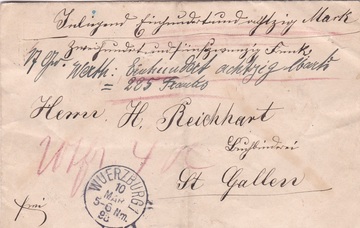 Inliegend Einhundert und achtzig Mark
Zweihundert fünfundzwanzig Frank
17 Gr. Werth: Einhundert achtzig Mark
= 225 Franks
Herrn H. Reichhart
Buchbinderei
St Gallen
WUERZBURG I
10
MAR
5-6 Nm.
88
frei